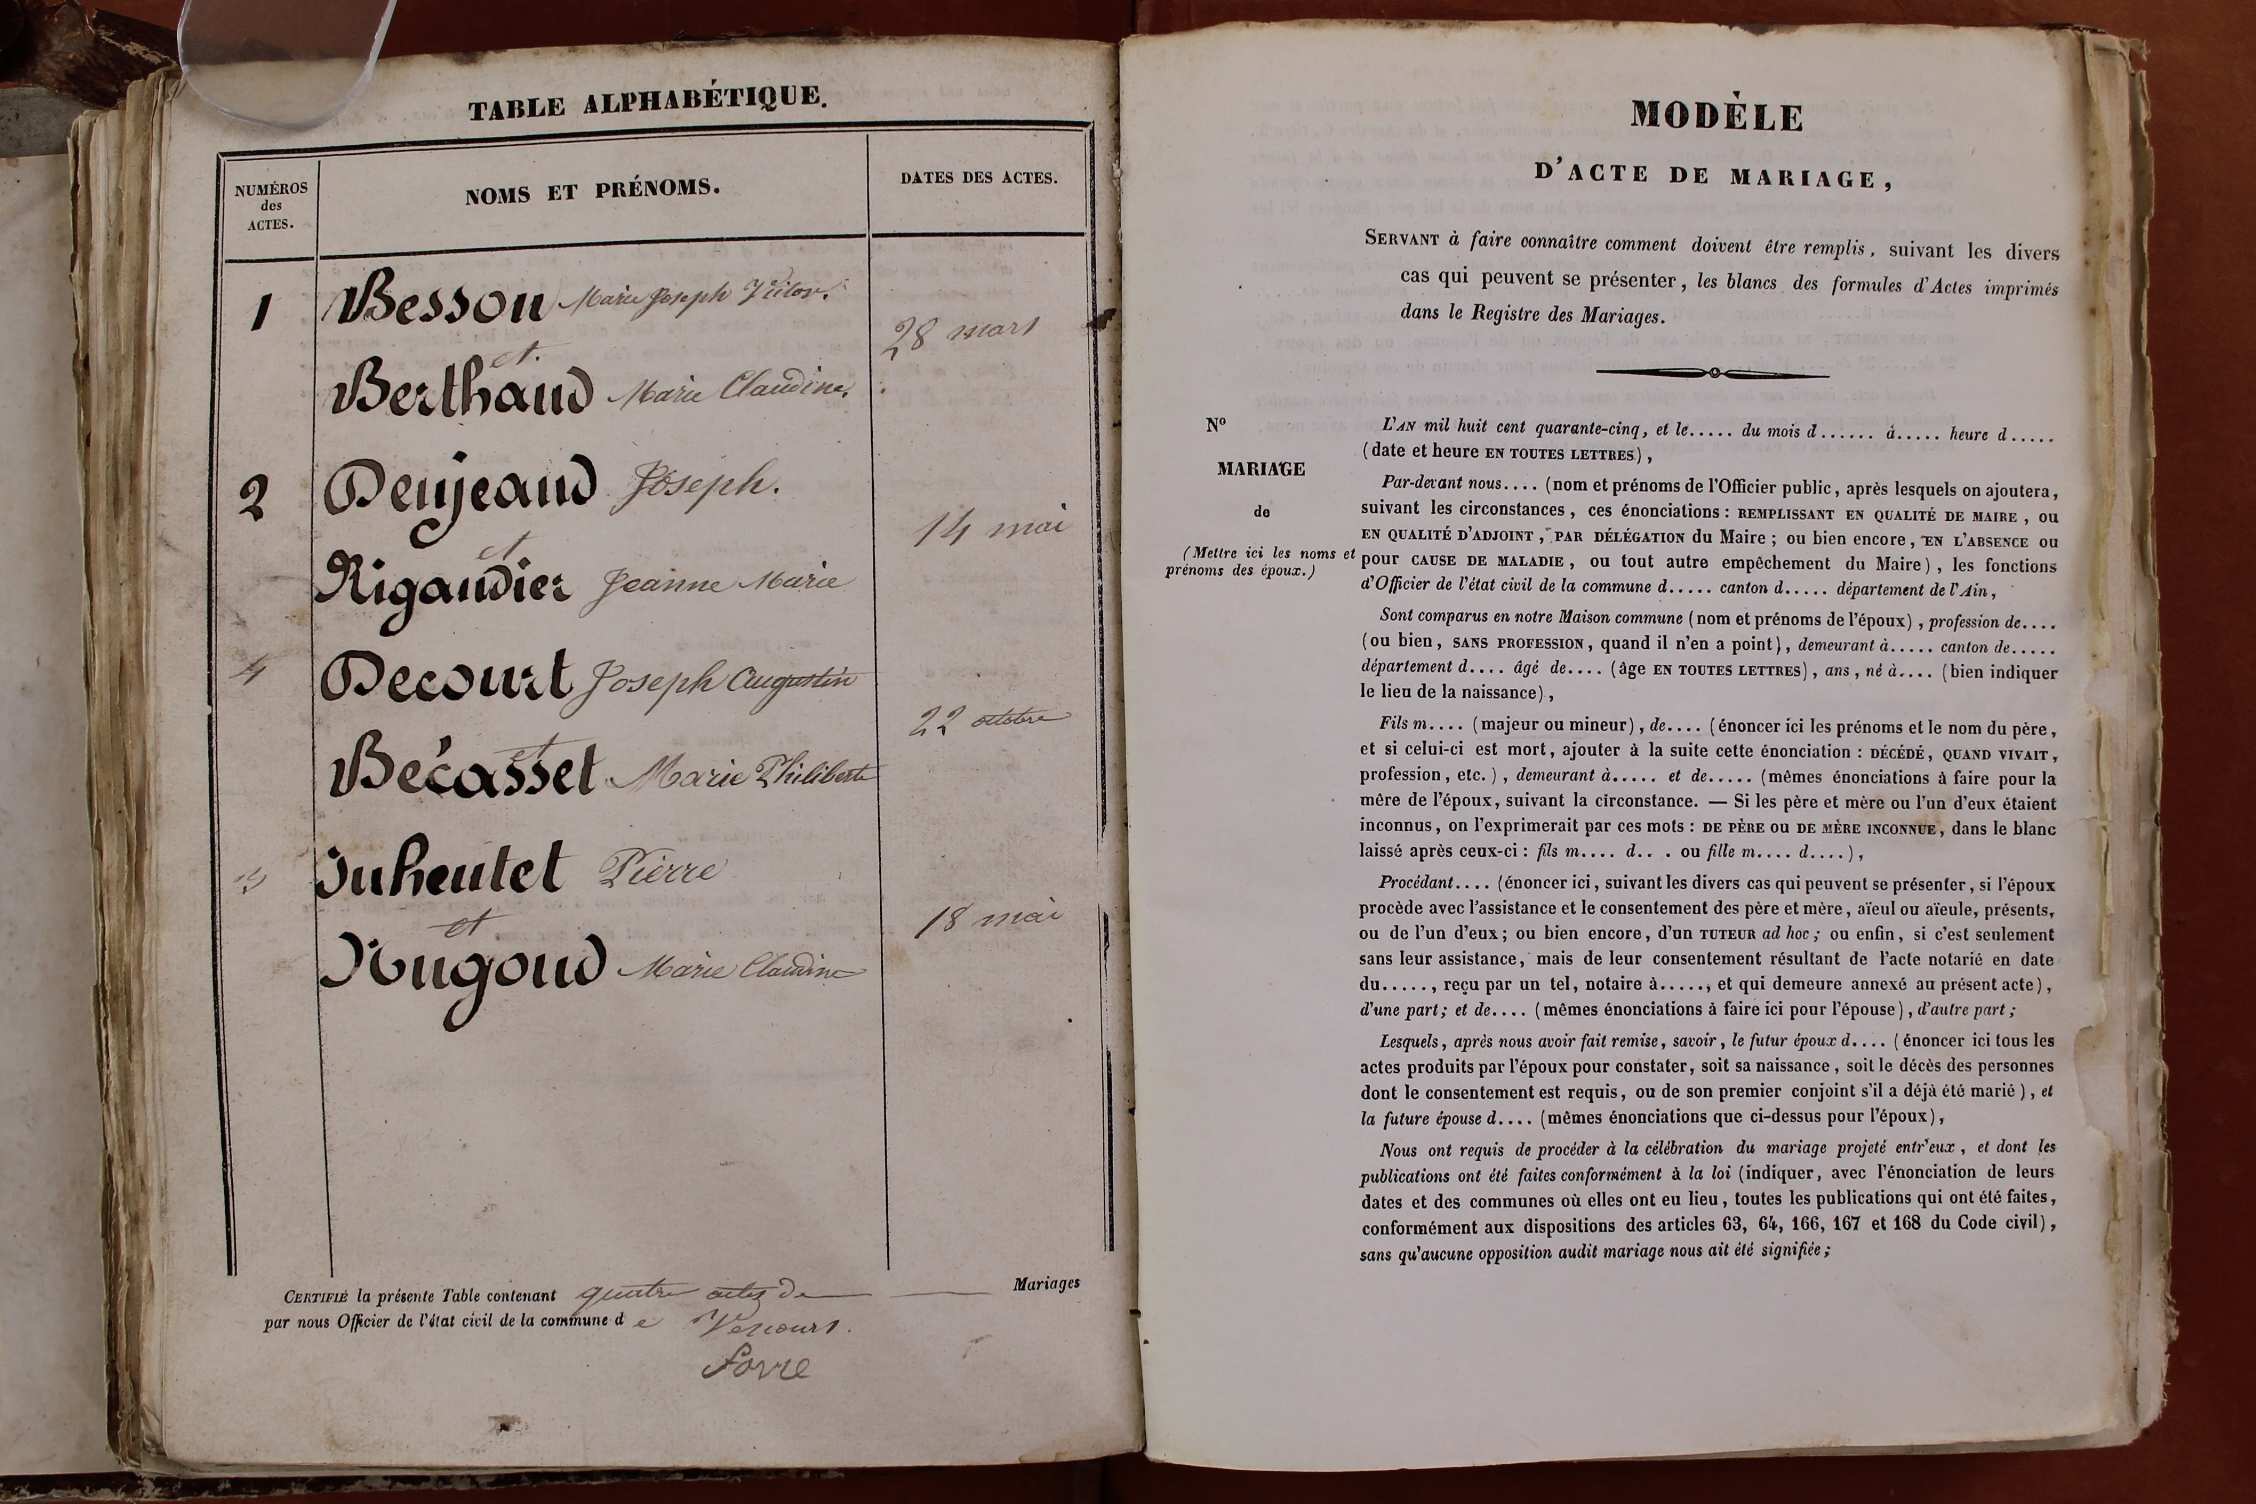 TABLE ALPHABÉTIQUE.
NUMÉROS
des
ACTES.
NOMS ET PRÉNOMS.
DATES DES ACTES.
1 Besson Marie Joseph
et
28 mars
Berthaud Marie Claudine.
2 Denjeand Joseph.
et
14 mai
Rigaudier Jeanne Marie
4 Decourt Joseph Augustin
et
22 octobre
Becasset Marie Philiberte
3 Juheutet Pierre
et
18 mai
Nugoud Marie Claudine
CERTIFIÉ la présente Table contenant quatre actes de Mariages
par nous Officier de l'état civil de la commune de Vescours.
MODÈLE
D'ACTE DE MARIAGE,
SERVANT à faire connaître comment doivent être remplis, suivant les divers
cas qui peuvent se présenter, les blancs des formules d'Actes imprimés
dans le Registre des Mariages.
N°
MARIAGE
de
(Mettre ici les noms et
prénoms des époux.)
L'AN mil huit cent quarante-cinq, et le..... du mois d...... à..... heure d.....
(date et heure EN TOUTES LETTRES),
Par-devant nous.... (nom et prénoms de l'Officier public, après lesquels on ajoutera,
suivant les circonstances, ces énonciations: REMPLISSANT EN QUALITÉ DE MAIRE, OU
EN QUALITÉ D'ADJOINT, PAR DÉLÉGATION du Maire; ou bien encore, EN L'ABSENCE ou
pour CAUSE DE MALADIE, ou tout autre empêchement du Maire), les fonctions
d'Officier de l'état civil de la commune d..... canton d..... département de l'Ain,
Sont comparus en notre Maison commune (nom et prénoms de l'époux), profession de....
(ou bien, SANS PROFESSION, quand il n'en a point), demeurant à..... canton de.....
département d.... âgé de.... (âge EN TOUTES LETTRES), ans, né à.... (bien indiquer
le lieu de la naissance),
Fils m.... (majeur ou mineur), de.... (énoncer ici les prénoms et le nom du père,
et si celui-ci est mort, ajouter à la suite cette énonciation: DÉCÉDÉ, QUAND VIVAIT,
profession, etc.), demeurant à..... et de..... (mêmes énonciations à faire pour la
mêre de l'époux, suivant la circonstance. — Si les père et mère ou l'un d'eux étaient
inconnus, on l'exprimerait par ces mots: DE PÈRE OU DE MÈRE INCONNUE, dans le blanc
laissé après ceux-ci: fils m.... d... ou fille m.... d....),
Procédant.... (énoncer ici, suivant les divers cas qui peuvent se présenter, si l'époux
procède avec l'assistance et le consentement des père et mère, aïeul ou aïeule, présents,
ou de l'un d'eux; ou bien encore, d'un TUTEUR ad hoc; ou enfin, si c'est seulement
sans leur assistance, mais de leur consentement résultant de l'acte notarié en date
du....., reçu par un tel, notaire à....., et qui demeure annexé au présent acte),
d'une part; et de.... (mêmes énonciations à faire ici pour l'épouse), d'autre part;
Lesquels, après nous avoir fait remise, savoir, le futur époux d.... (énoncer ici tous les
actes produits par l'époux pour constater, soit sa naissance, soit le décès des personnes
dont le consentement est requis, ou de son premier conjoint s'il a déjà été marié), et
la future épouse d.... (mêmes énonciations que ci-dessus pour l'époux),
Nous ont requis de procéder à la célébration du mariage projeté entr'eux, et dont les
publications ont été faites conformément à la loi (indiquer, avec l'énonciation de leurs
dates et des communes où elles ont eu lieu, toutes les publications qui ont été faites,
conformément aux dispositions des articles 63, 64, 166, 167 et 168 du Code civil),
sans qu'aucune opposition audit mariage nous ait été signifiée;